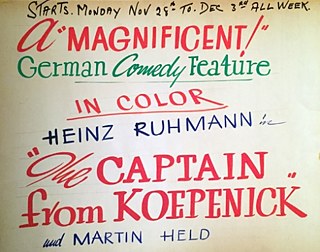 STARTS. MONDAY NOV 29th TO. DEC 3rd ALL WEEK.
A "MAGNIFICENT!"
German Comedy Feature
IN COLOR
HEINZ RUHMANN in
"The CAPTAIN
from KOEPENICK"
und MARTIN HELD